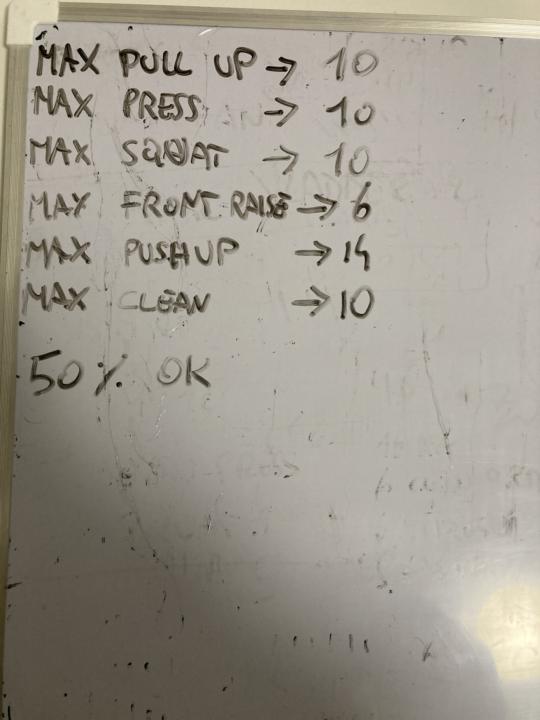 MAX PULL UP → 10
MAX PRESS → 10
MAX SQUAT → 10
MAX FRONT RAISE → 6
MAX PUSH UP → 14
MAX CLEAN → 10
50 % OK